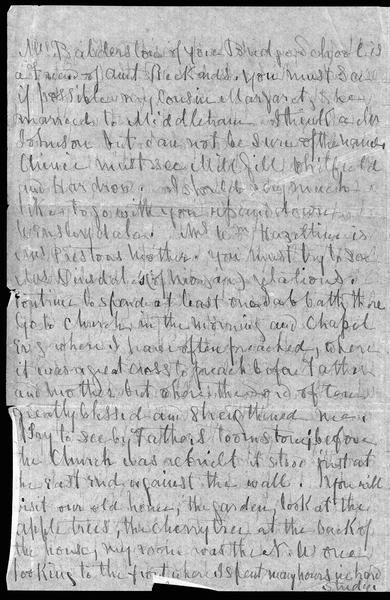 Mr Balderston of your Bridford school is
a friend of aunt Beckards. You must see
if possible my cousin Margaret, she
married to Middleham I think a Mr
Johnson but I am not be sure of the name
Clarence must see Mill fill Whitfield
and Hardrow. I should very much
like to go with you up and down
Wensleydale. Mr Wm Hazeltine is
Prestons Mother. You must try to see
Dinsdale relations.
Continue to spend at least one Sabbath there
go to Church in the morning and Chapel
where I have often preached, where
it was a great cross to preach before Father
and Mother but where the word of
greatly blessed and strengthened me.
Try to see by Fathers tombstone, before
the Church was rebuilt it stood just at
the East end against the wall. You will
visit our old home, the garden, look at the
apple trees, the cherry tree at the back of
the house, my room was the N.W one
looking to the front where I spent many hours in hard
study.